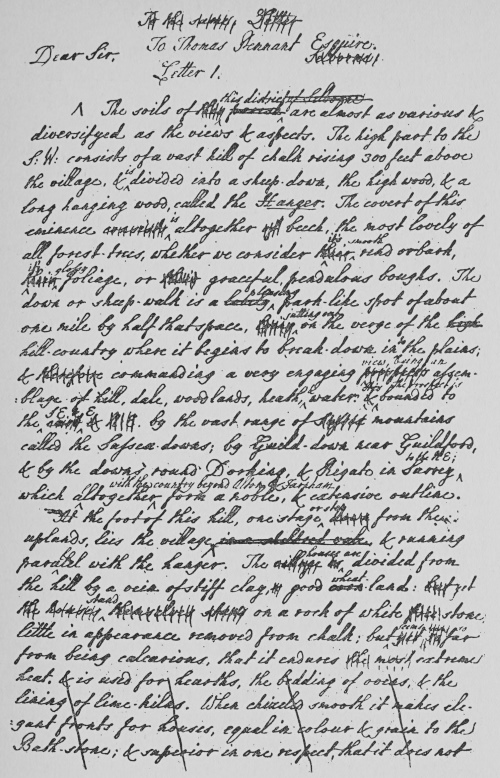 To Thomas Pennant Esquire.
Dear Sir.
Letter 1.
this district of Selborne
The soils of parish are almost as various &
diversifyed as the views & aspects. The high part to the
S: W: consists of a vast hill of chalk rising 300 feet above
the village, & is divided into a sheep-down, the high wood, & a
long hanging wood, called the Hanger. The covert of this
eminence is altogether beech, the most lovely of
all forest-trees, whether we consider its smooth rind or bark,
its glossy foliage, or graceful, pendulous boughs. The
down or sheep-walk is a pleasing park-like spot of about
one mile by half that space, jutting out on the verge of the high
hill-country where it begins to break-down into the plains;
& commanding a very engaging view, being an assem-
blage of hill, dale, woodlands, heath, & water. The prospect is bounded to
the S:E: & E. by the vast range of mountains
called the Sussex-downs; by Guild-down near Guildford,
& by the downs round Dorking, & Rigate in Surrey
to ye N:E;
which altogether, with the country beyond Alton & Farnham, form a noble, & extensive outline.
At the foot of this hill, one stage, or step from these
uplands, lies the village in a sheltered vale, & running
parallel with the hanger. The houses are divided from
the hill by a vein of stiff clay, good wheat land: yet
stand on a rock of white stone;
little in appearance removed from chalk; but seems so far
from being calcarious, that it endures extreme
heat, & is used for hearths, the bedding of ovens, & the
lining of lime-kilns. When chizzled smooth it makes ele-
gant fronts for houses, equal in colour & grain to the
Bath-stone; & superior in one respect, that it does not